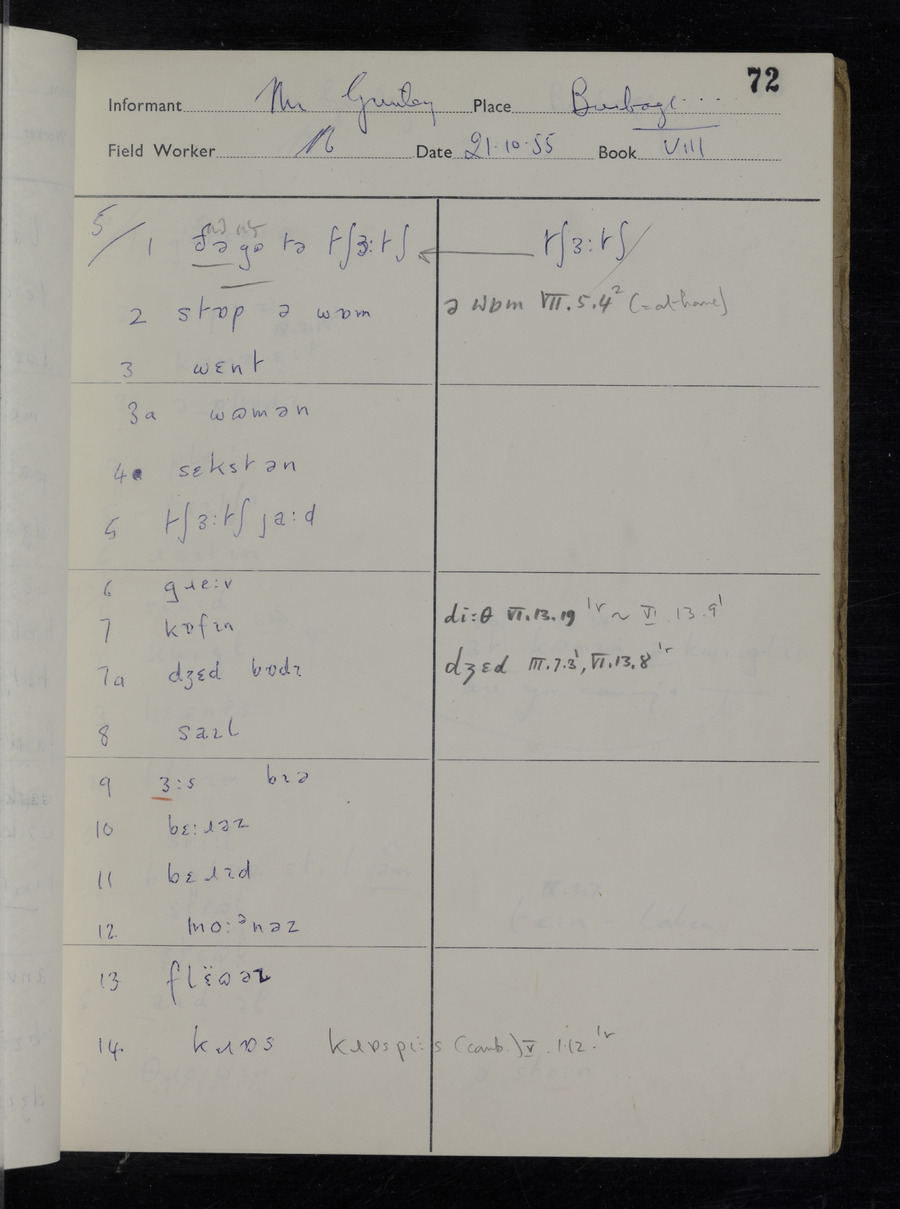 72
Informant Mr Place Burbage
Field Worker N Date 21.10.55 Book VIII
5/ 1 ðə gɒ tə tʃɜ:tʃ ← tʃɜ:tʃ
2 stɒp ə wɒm ə wɒm VII.5.4² (=at home)
3 wɛnt
3a wɷmən
4 sɛkstən
5 tʃɜ:tʃ ja:d
6 gɹe:v di:θ VI.13.19 ʹʳ ~ VI.13.9ʹ
7 kɒfɪn
7a dʒɛd bɒdɪ dʒɛd III.7.3ʹ, VI.13.8ʹʳ
8 saɪl
9 ɜ:s bɪə
10 bɛ:ɹəz
11 bɛɹɪd
12 mo:ᵊnəz
13 flɛ̈ɷəz
14. kɹɒs kɹɒspi:s (comb.) V.1.12.ʹʳ